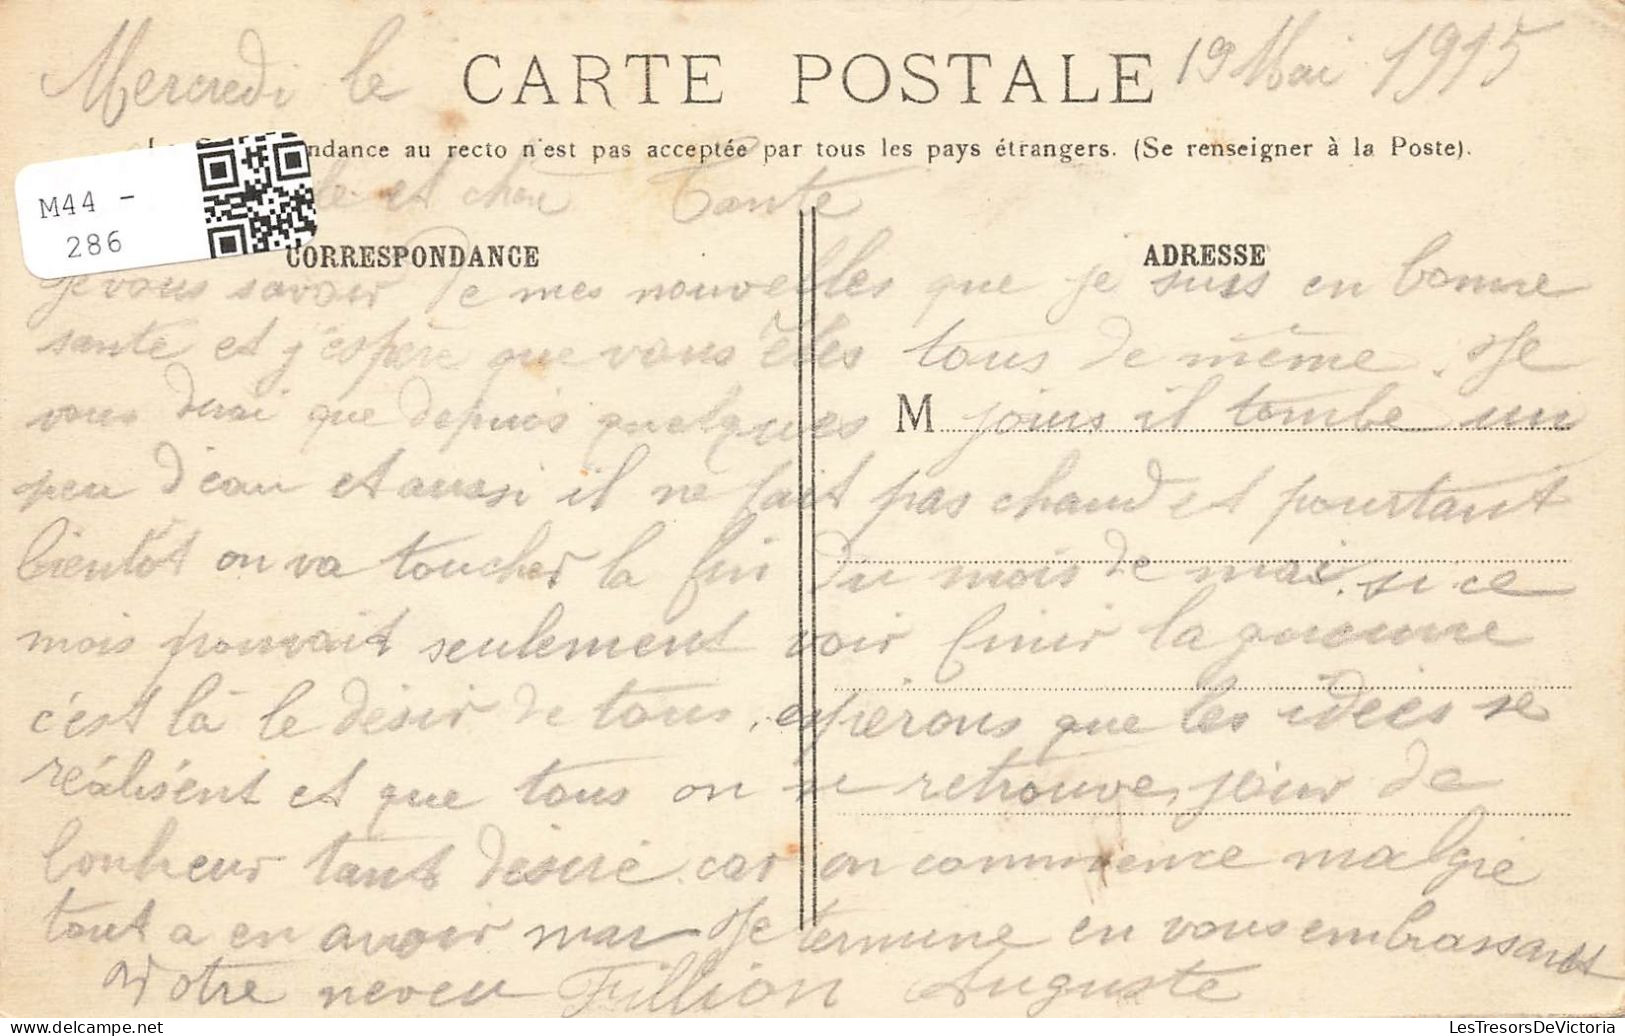 Mercredi le CARTE POSTALE 19 Mai 1915
ndance au recto n'est pas acceptée par tous les pays étrangers. (Se renseigner à la Poste).
M44 -
286
et cher Tante
CORRESPONDANCE
ADRESSE
je vous savoir de mes nouvelles que je suis en bonne
santé et j'espère que vous êtes tous de même. Je
vous dirai que depuis quelques M jours il tombe un
peu d'eau et aussi il ne fait pas chaud et pourtant
bientôt on va toucher la fin du mois de mai, si ce
mois pourrait seulement voir finir la guerre
c'est là le désir de tous, espérons que les idées se
réalisent et que tous on se retrouve, jour de
bonheur tant désiré car on commence malgré
tout a en avoir mar Je termine en vous embrassant
Votre neveu Fillion Auguste
LesTresorsDeVictoria